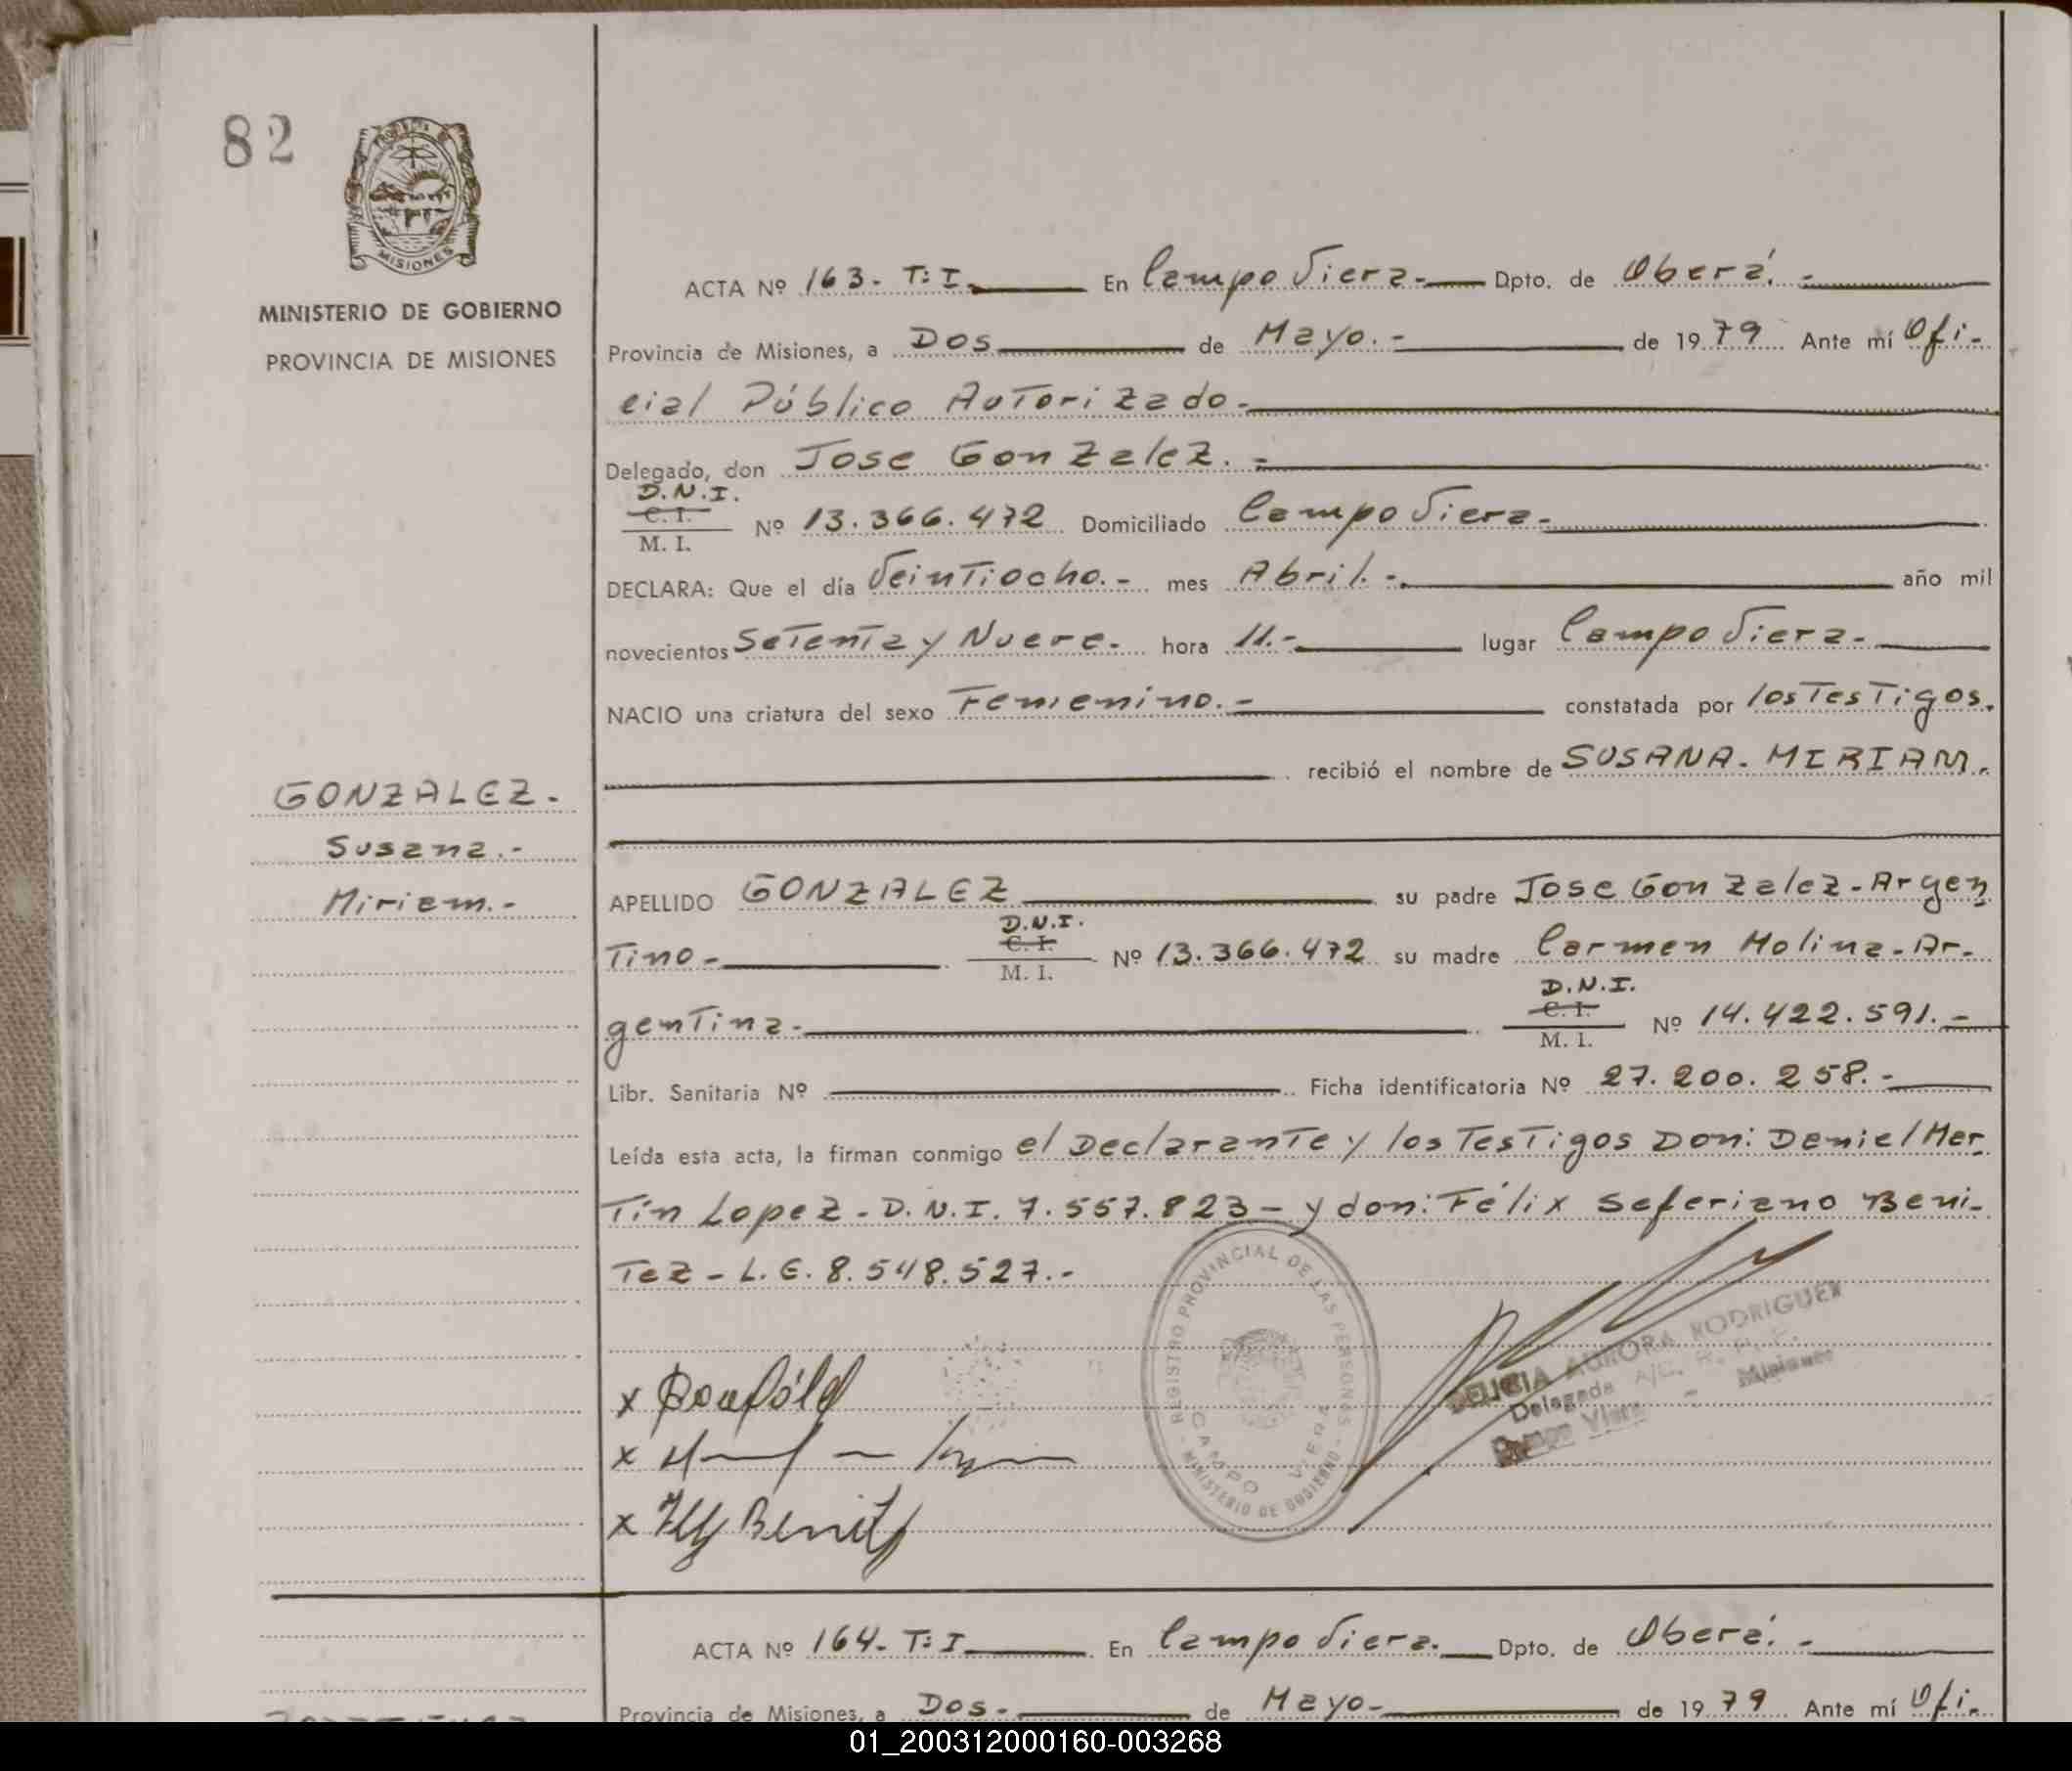 82
PROVINCIA DE
MISIONES
MINISTERIO DE GOBIERNO
PROVINCIA DE MISIONES
ACTA Nº 163- T: I. En Campo Viera.- Dpto. de Oberá.-
Provincia de Misiones, a Dos de Mayo.- de 1979 Ante mí Ofi-
cial Público Autorizado.-
Delegado, don Jose Gonzalez.-
D.N.I.
C. I.
M. I. Nº 13.366.472 Domiciliado Campo Viera-
DECLARA: Que el día Veintiocho.- mes Abril.-. año mil
novecientos Setenta y Nueve. hora 11.- lugar Campo Viera-
NACIO una criatura del sexo Femenino.- constatada por los Testigos.
recibió el nombre de SUSANA. MIRIAM.
GONZALEZ.
Susana.-
Miriam.-
APELLIDO GONZALEZ su padre Jose Gonzalez-Argen
tino- D.N.I. C. I. M. I. Nº 13.366.472 su madre Carmen Molina-Ar-
gentina- D.N.I. C. I. M. I. Nº 14.422.591.-
Libr. Sanitaria Nº Ficha identificatoria Nº 27.200.258.-
Leída esta acta, la firman conmigo el Declarante y los Testigos Don: Daniel Mar
tín Lopez- D.N.I. 7.557.823- y don: Félix Seferiano Beni-
tez- L.E. 8.548.527.-
REGISTRO PROVINCIAL DE LAS PERSONAS
CAMPO VIERA
MINISTERIO DE GOBIERNO
DELICIA AURORA RODRIGUEZ
Delegada A/C. R. P. P.
Campo Viera - Misiones
x
x
x Benitez
ACTA Nº 164- T: I En Campo Viera. Dpto. de Oberá.-
Provincia de Misiones, a Dos- de Mayo- de 1979 Ante mí Ofi-
01_200312000160-003268